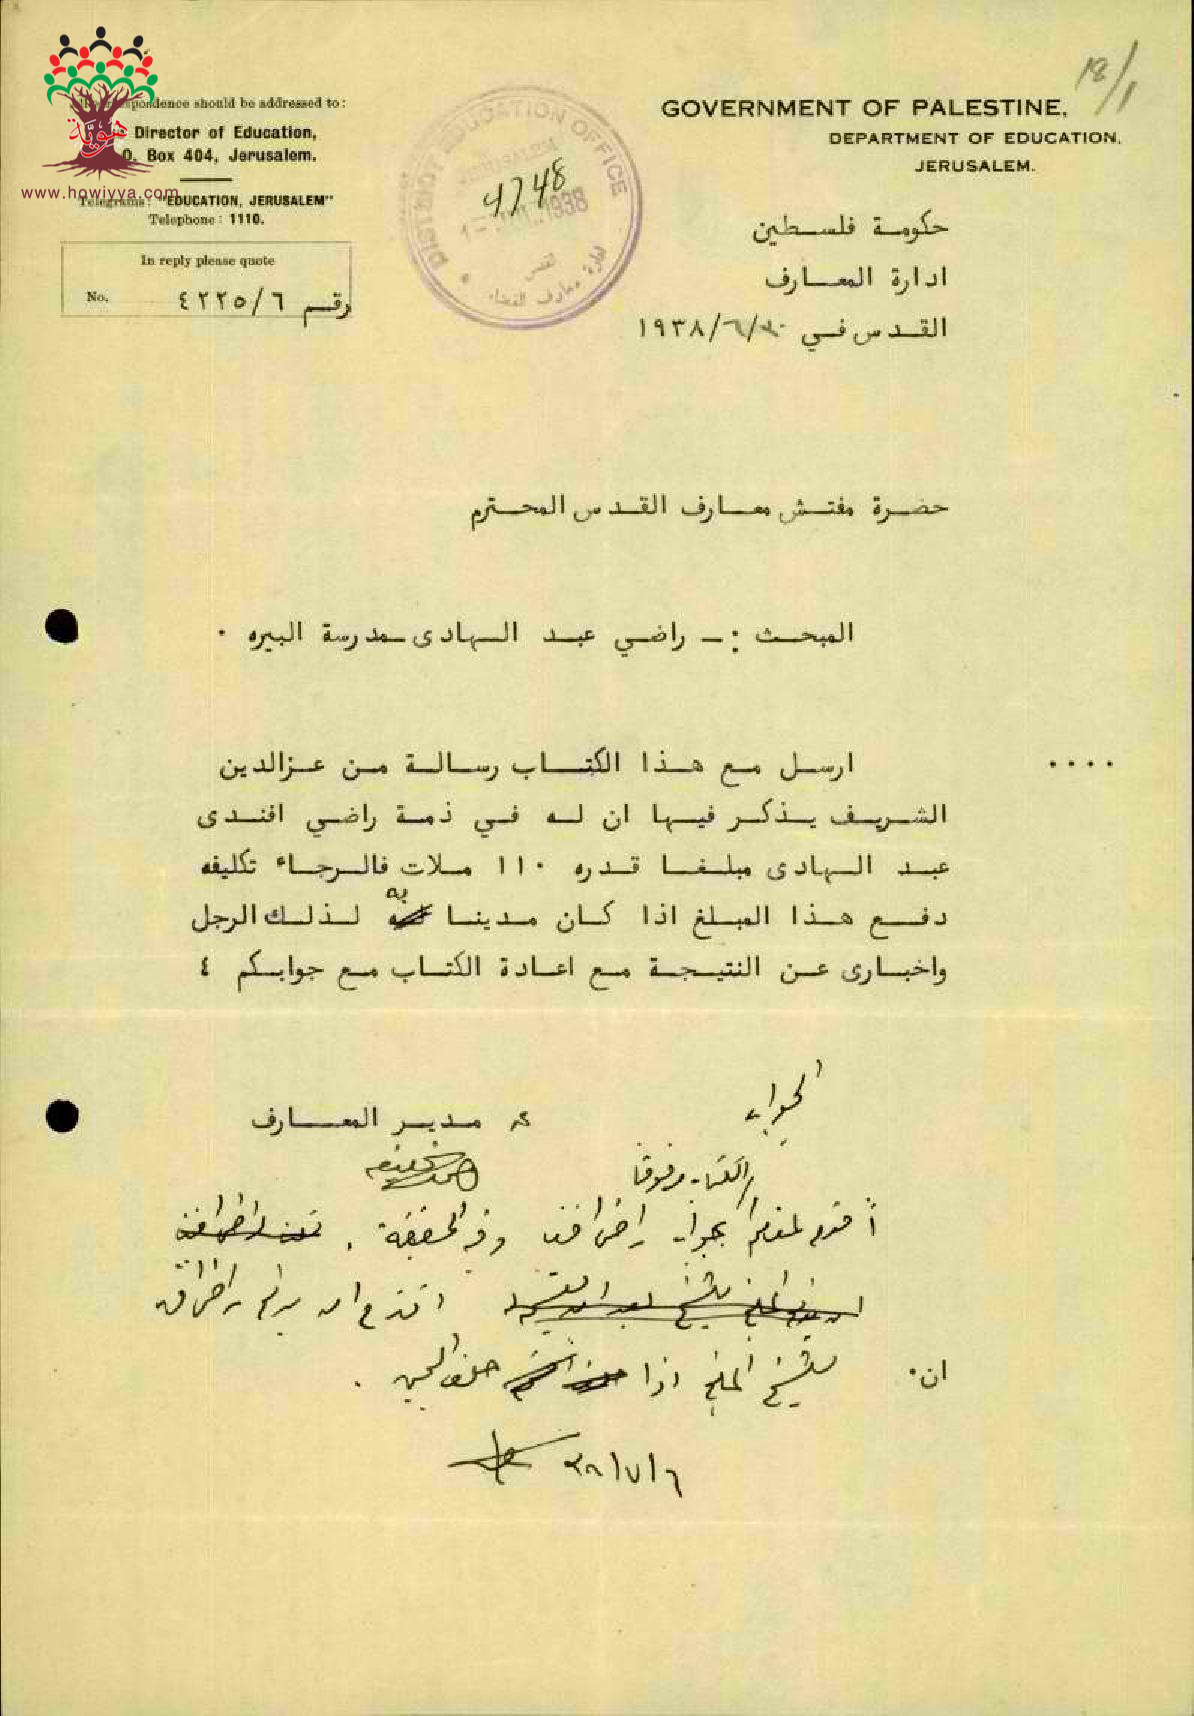 18/1
All correspondence should be addressed to:
Director of Education,
O. Box 404, Jerusalem.
هوية
www.howiyya.com
Telegrams: "EDUCATION, JERUSALEM"
Telephone: 1110.
In reply please quote
No. رقم ٤٢٢٥/٦
DISTRICT EDUCATION OFFICE
JERUSALEM
4748
1 - JUL. 1938
القدس
ادارة معارف القضاء
GOVERNMENT OF PALESTINE,
DEPARTMENT OF EDUCATION,
JERUSALEM.
حكومة فلسطين
ادارة المعارف
القدس في ٣٠/٦/١٩٣٨
حضرة مفتش معارف القدس المحترم
المبحث :ـ راضي عبد الهادى ـ مدرسة البيره ٠
.... ارسل مع هذا الكتاب رسالة من عزالدين
الشريف يذكر فيها ان له في ذمة راضي افندى
عبد الهادى مبلغا قدره ١١٠ ملات فالرجاء تكليفه
دفع هذا المبلغ اذا كان مدينا به لذلك الرجل
واخبارى عن النتيجة مع اعادة الكتاب مع جوابكم ٤
ع مدير المعارف
الجواب
الكتاب مرفوقا
بجواب راضي افندي وفي الحقيقة .
ان
المبلغ اذا حلف اليمين .
٣٨/٧/٦